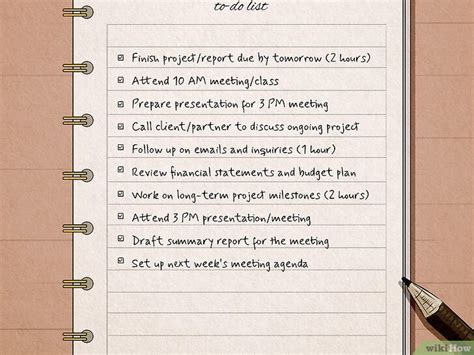 to-do list
Finish project/report due by tomorrow (2 hours)
Attend 10 AM meeting/class
Prepare presentation for 3 PM meeting
Call client/partner to discuss ongoing project
Follow up on emails and inquiries (1 hour)
Review financial statements and budget plan
Work on long-term project milestones (2 hours)
Attend 3 PM presentation/meeting
Draft summary report for the meeting
Set up next week's meeting agenda
wikiHow